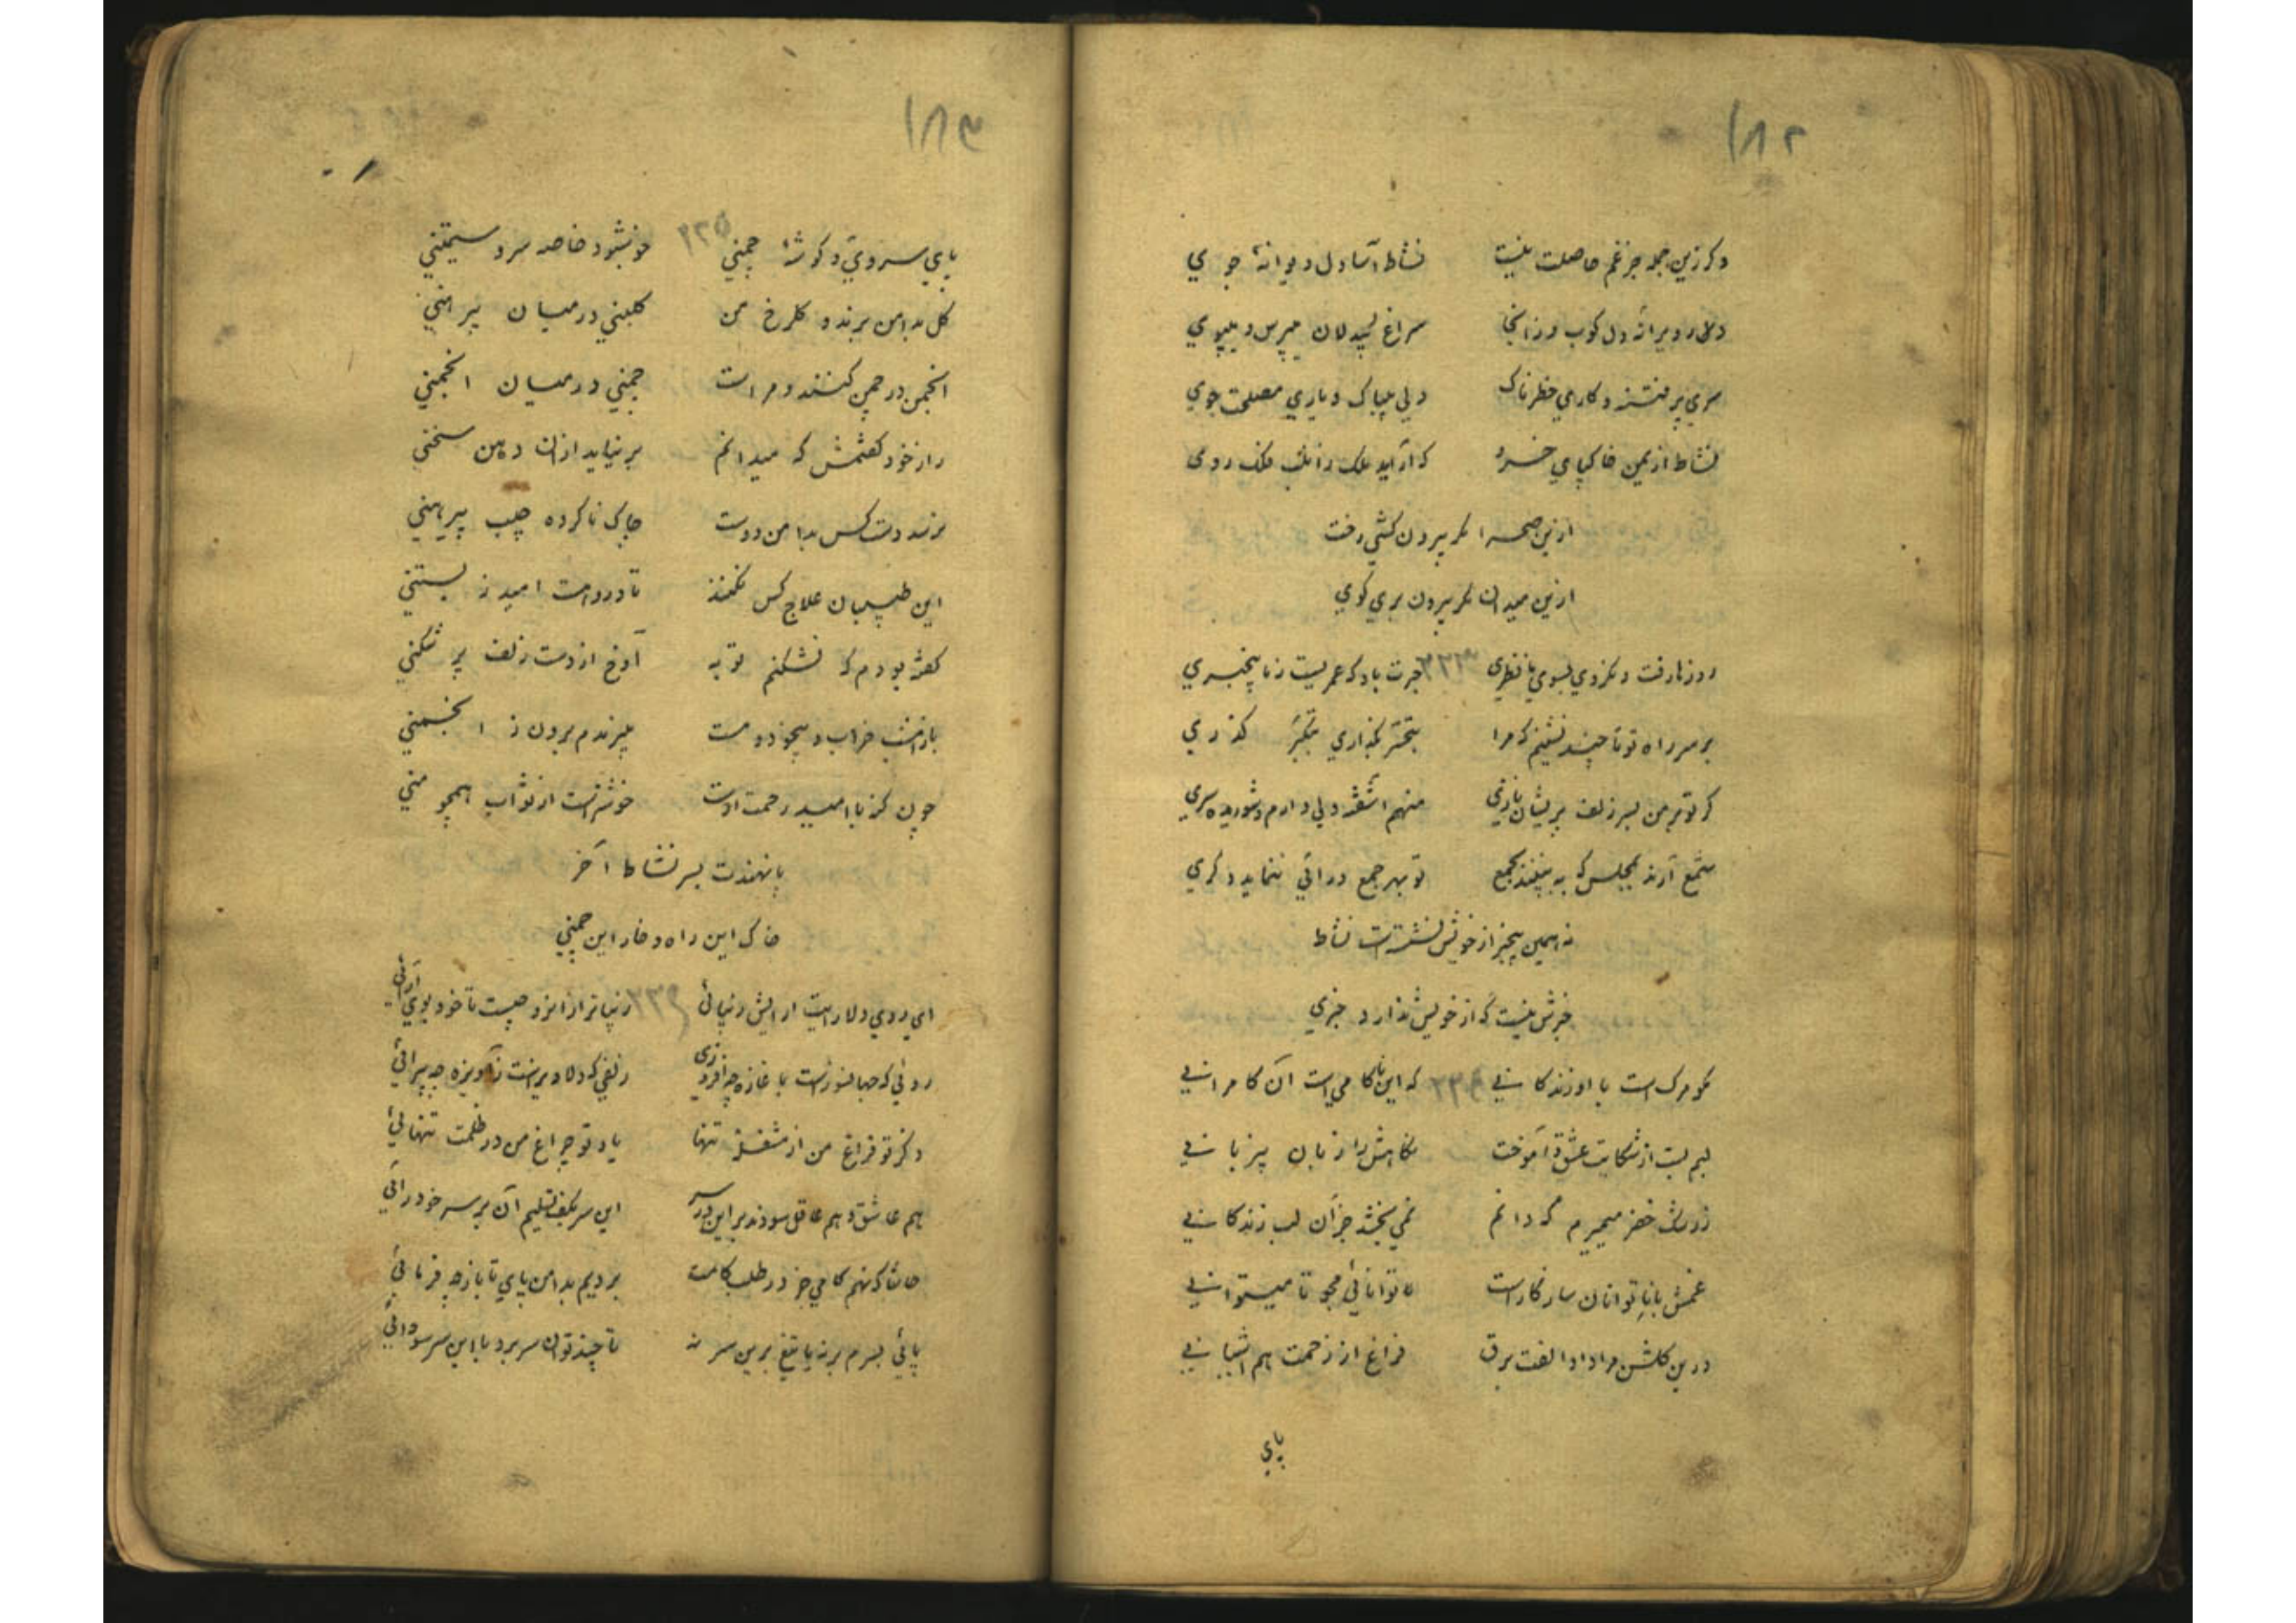 ۱۸۲
وکر زین جمله جز غم حاصلت نیست نشاط آسا دل دیوانهٔ جوی
دلی در ویرانه دل کوب و زانجا سراغ بیدلان میپرس و میپوی
سری پر فتنه و کاری خطرناک دلی بیباک و یاری مصلحت جوی
نشاط از یمن خاکپای خسرو که آراید ملک را ملک روی
ازین صحرا مکر بیرون کشی رخت
ازین میدان مکر بیرون بری کوی
روزها رفت و نکردی بسوی ما نظری ۲۲۳ خبرت باد که عمریست ز ما بیخبری
بر سر راه تو تا چند نشینم که مرا بتحسر بکذاری بتکبر کذری
کر تو بر من بسر زلف پریشان نازی منهم آشفته دلی دارم و شوریده سری
شمع آرند بمجلس که به بینند بجمع تو بهر جمع درآئی ننماید دکری
نه همین بیخبر از خویش نشستست نشاط
خبرش نیست که از خویش ندارد خبری
نکو مرک است با او زندکانی ۲۲۴ که این ناکامی است آن کامرانی
لبم بست از شکایت عشق و آموخت نکاهش را زبان بیزبانی
ز رشک خضر میمیرم که دانم نمی بخشد جز آن لب زندکانی
غمش با ناتوانان سازکار است توانائی مجو تا میتوانی
درین کلشن مرا داد الفت برق فراغ از زحمت هم آشیانی
پای
۱۸۳
پای سروی و کوشهٔ چمنی ۲۲۵ خونبشود خاصه سرو سیمتنی
کل بدامن برند و کلرخ من کلبنی در میان پیرهنی
انجمن در چمن کنند و مراست چمنی در میان انجمنی
راز خود کفتمش که میدانم بر نیاید از آن دهن سخنی
نرسد دست کس بدامن دوست چاک ناکرده جیب پیرهنی
این طبیبان علاج کس نکنند تا درو هست امید زیستنی
کفته بودم که نشکنم توبه آوخ از دست زلف پر شکنی
باز امشب خراب و بیخود و مست میبرندم برون ز انجمنی
چون کنه با امید رحمت اوست خوشترست از ثواب همچو منی
پا نهندت بسر نشاط آخر
خاک این راه و خار این چمنی
ای روی دلارایت آرایش زیبائی ۲۲۶ زیباتر از این رو چیست تا خود بوی آرائی
روئی که جهانسوزست با غازه چه افروزی زلفی که دلاویزست ز آویزه چه پیرائی
ذکر تو فراغ من از مشغلهٔ تنها یاد تو چراغ من در ظلمت تنهائی
هم عاشق و هم عاقل سودند بر این در سر این سر بکف تسلیم آن بر سر خودرائی
حاشا که نهم کامی جز در طلب کامت بردیم بدامن پای تا باز چه فرمائی
پائی بسرم بر نه یا تیغ برین سر نه تا چند توان سر برد با این سر سودائی